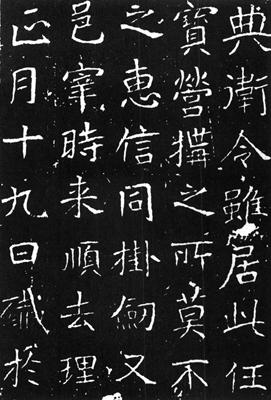 典衛令雖居此任
寶營之所莫不
之惠信同掛劒又
邑宰時来順去理
正月十九日殲於